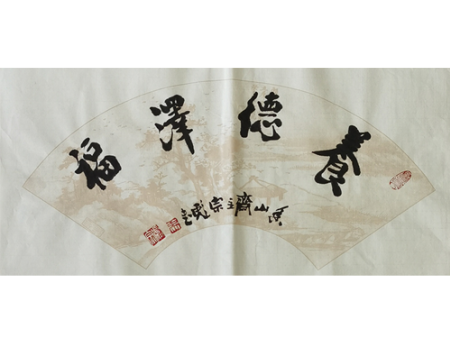 養德澤福
山齋主宗